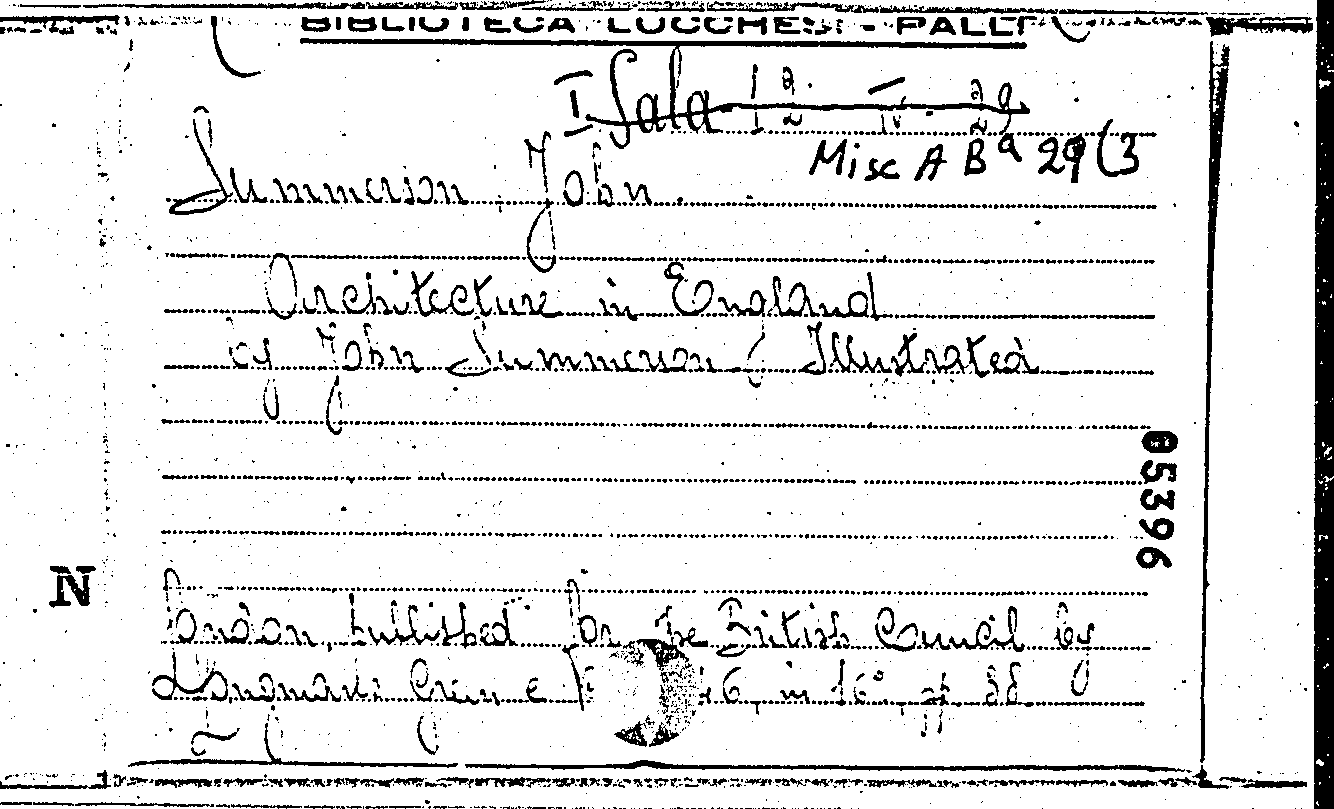 BIBLIOTECA LUCCHESI - PALLI
I Sala 12 IV. 29
Misc A Bª 29(3
Summerson John.
Architecture in England
by John Summerson / Illustrated
05396
N
London, published for the British Council by
Longmans Green e 46, in 16°, pp.